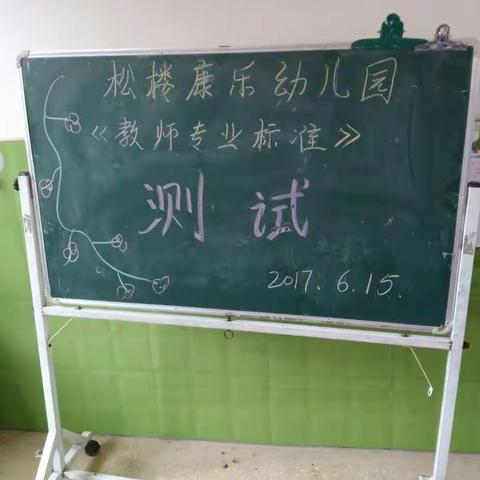 松楼康乐幼儿园
《教师专业标准》
测试
2017.6.15.